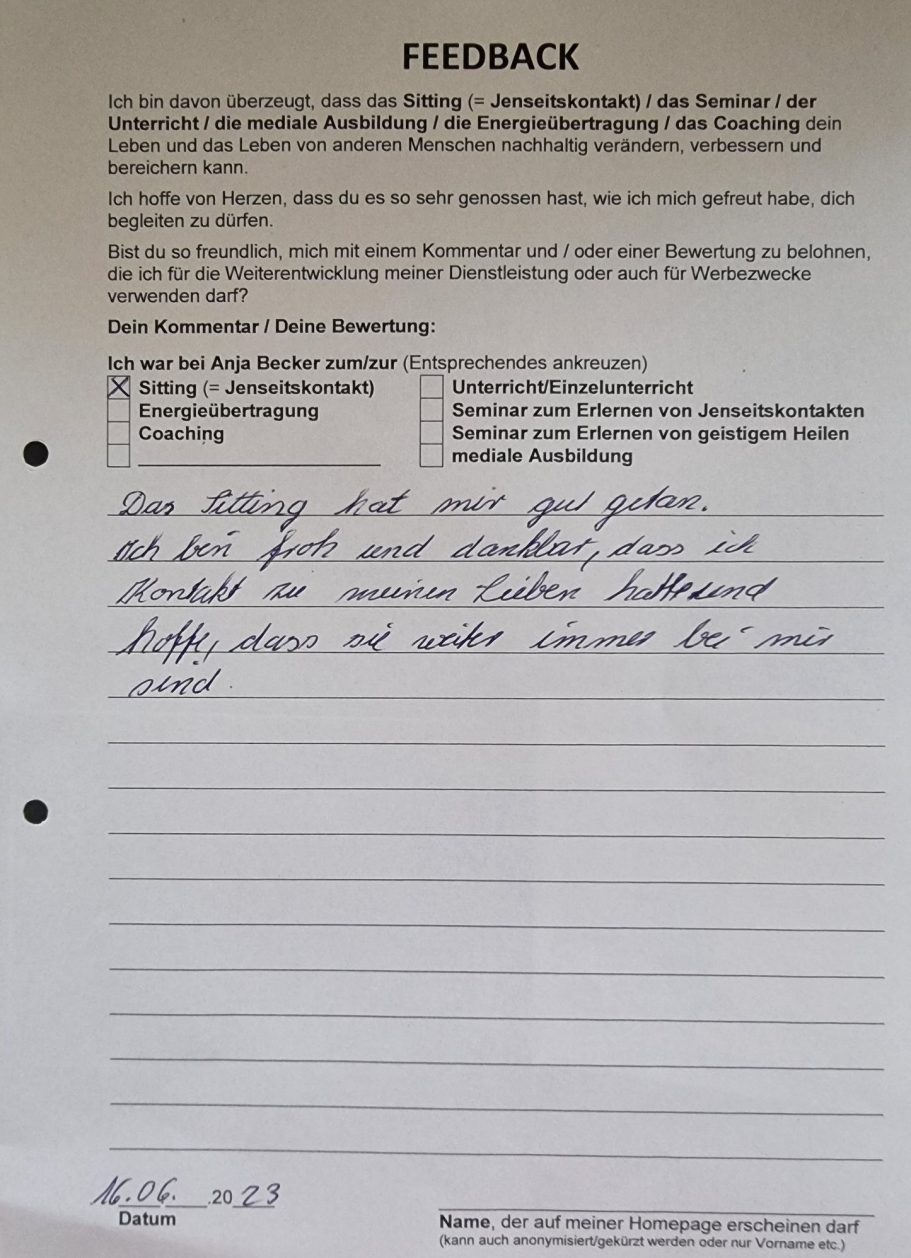 FEEDBACK
Ich bin davon überzeugt, dass das Sitting (= Jenseitskontakt) / das Seminar / der
Unterricht / die mediale Ausbildung / die Energieübertragung / das Coaching dein
Leben und das Leben von anderen Menschen nachhaltig verändern, verbessern und
bereichern kann.
Ich hoffe von Herzen, dass du es so sehr genossen hast, wie ich mich gefreut habe, dich
begleiten zu dürfen.
Bist du so freundlich, mich mit einem Kommentar und / oder einer Bewertung zu belohnen,
die ich für die Weiterentwicklung meiner Dienstleistung oder auch für Werbezwecke
verwenden darf?
Dein Kommentar / Deine Bewertung:
Ich war bei Anja Becker zum/zur (Entsprechendes ankreuzen)
Sitting (= Jenseitskontakt)
Energieübertragung
Coaching
Unterricht/Einzelunterricht
Seminar zum Erlernen von Jenseitskontakten
Seminar zum Erlernen von geistigem Heilen
mediale Ausbildung
Das Sitting hat mir gut getan.
Ich bin froh und dankbar, dass ich
Kontakt zu meinen Lieben hatte und
hoffe, dass sie weiter immer bei mir
sind.
16.06. .2023
Datum
Name, der auf meiner Homepage erscheinen darf
(kann auch anonymisiert/gekürzt werden oder nur Vorname etc.)